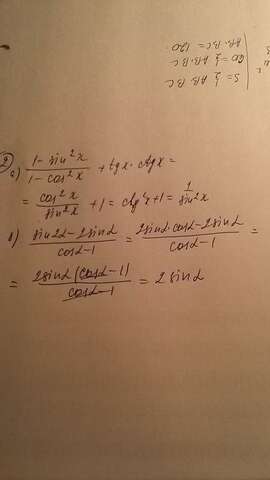 S = ½ AB·BC
60 = ½ AB·BC
AB·BC = 120
② a) (1 - sin²x)/(1 - cos²x) + tgx · ctgx =
= cos²x/sin²x + 1 = ctg²x + 1 = 1/sin²x
б) (sin2α - 2sinα)/(cosα - 1) = (2sinα·cosα - 2sinα)/(cosα - 1) =
= 2sinα(cosα - 1)/(cosα - 1) = 2sinα